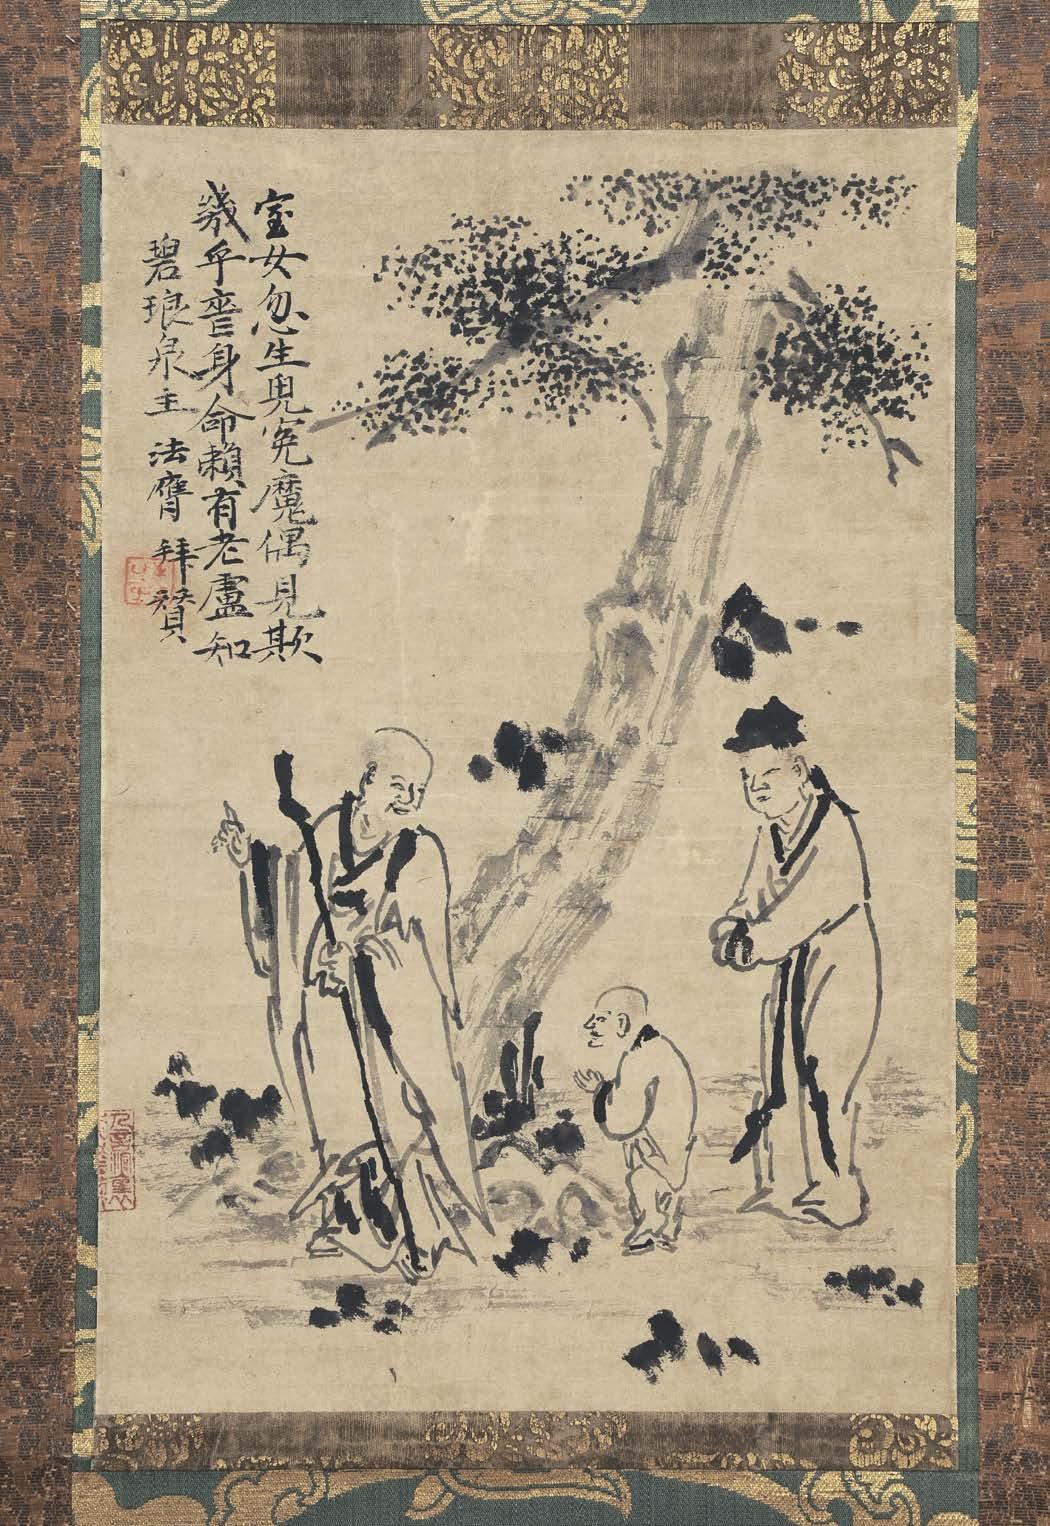 室女忽生兒冤魔偶見欺
幾乎喪身命賴有老盧知
碧琅泉主法膺拜贊